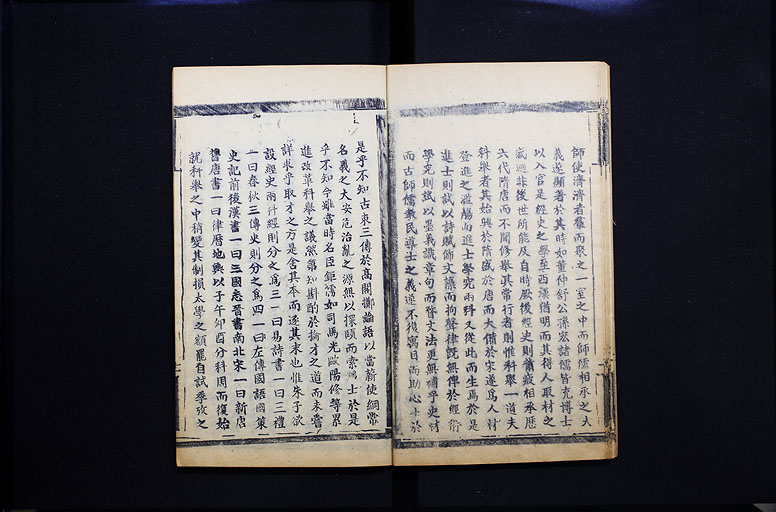 師使濟濟者羣而聚之一室之中而師儒相承之大
義遂顯著於其時如董仲舒公孫宏諸儒皆充博士
以入官是經史之學至西漢猶明而其得人取材之
盛迥非後世所能及自時厥後經史則備載相承歷
六代隋唐而不聞修舉其常行者則惟科舉一道夫
科舉者其始興於隋盛於唐而大備於宋遂爲人材
登進之嚆觴而進士學究兩科又從此而生焉於是
進士則試以詩賦飾文藻而拘聲律旣無俾於經術
學究則試以墨義識章句而瞀文法更無補乎史材
而古師儒敎民導士之義遂不復寓目而助心士於
是乎不知古束三傳於高閣擲論語以當薪使綱常
名義之大安危治亂之源無以探頤而索 士於是
乎不知今雖當時名臣鉅儒如司馬光歐陽修等累
進改革科舉之議然第知斟酌於掄才之道而未嘗
詳求乎取才之方是舍其本而逐其末也惟朱子欲
設經史兩科經則分之爲三一曰易詩書一曰三禮
一曰春秋三傳史則分之爲四一曰左傳國語國策
史記前後漢書一曰三國志晉書南北宋一曰新唐
舊唐書一曰律曆地輿以子午卯酉分科周而復始
就科舉之中稍變其制損太學之額罷自試季攷之